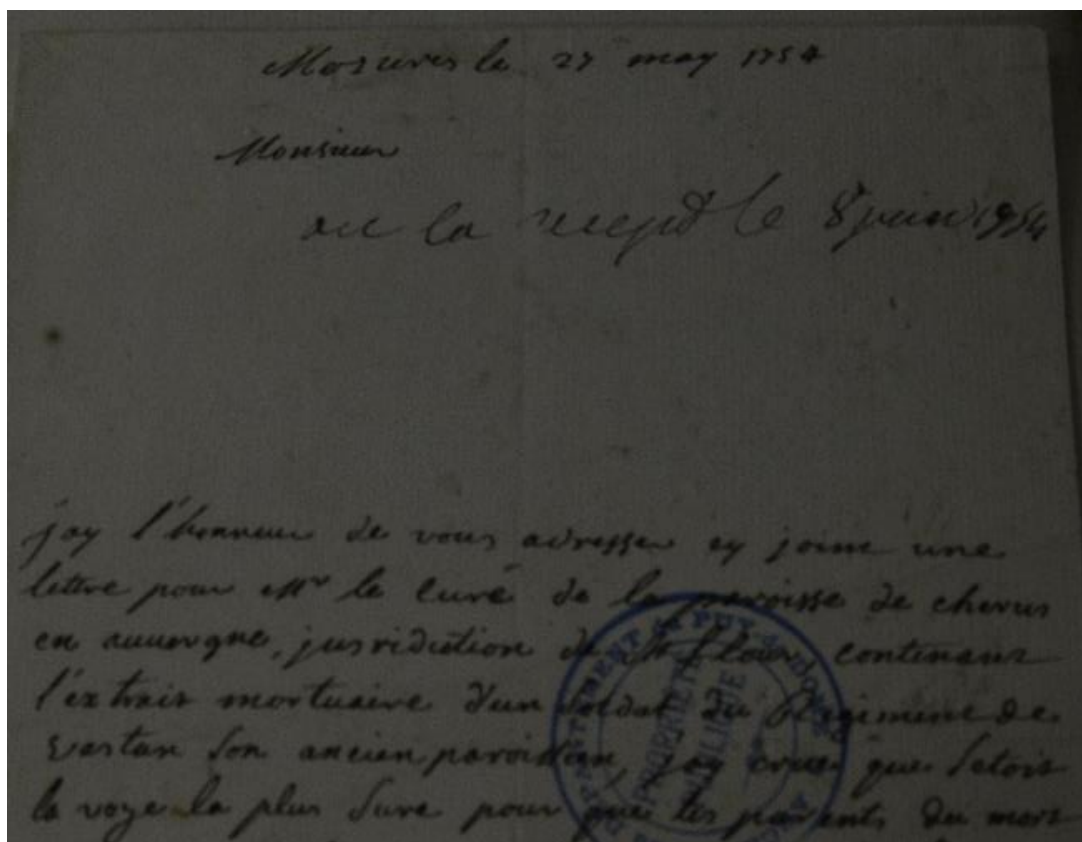 Mozieres le 27 may 1754
Monsieur
le 8 juin 1754
jay l'honneur de vous adresser cy joint une
lettre pour Mr le curé de la paroisse de cherus
en auvergne, jusridiction de St flour contenant
l'extrait mortuaire d'un soldat du Regiment de
Vastan son ancien paroissien, jay crue que setoit
la voye la plus sure pour que les parents du mort
DEPARTEMENT du PUY-de-DOME
PROPRIÉTÉ
PUBLIQUE